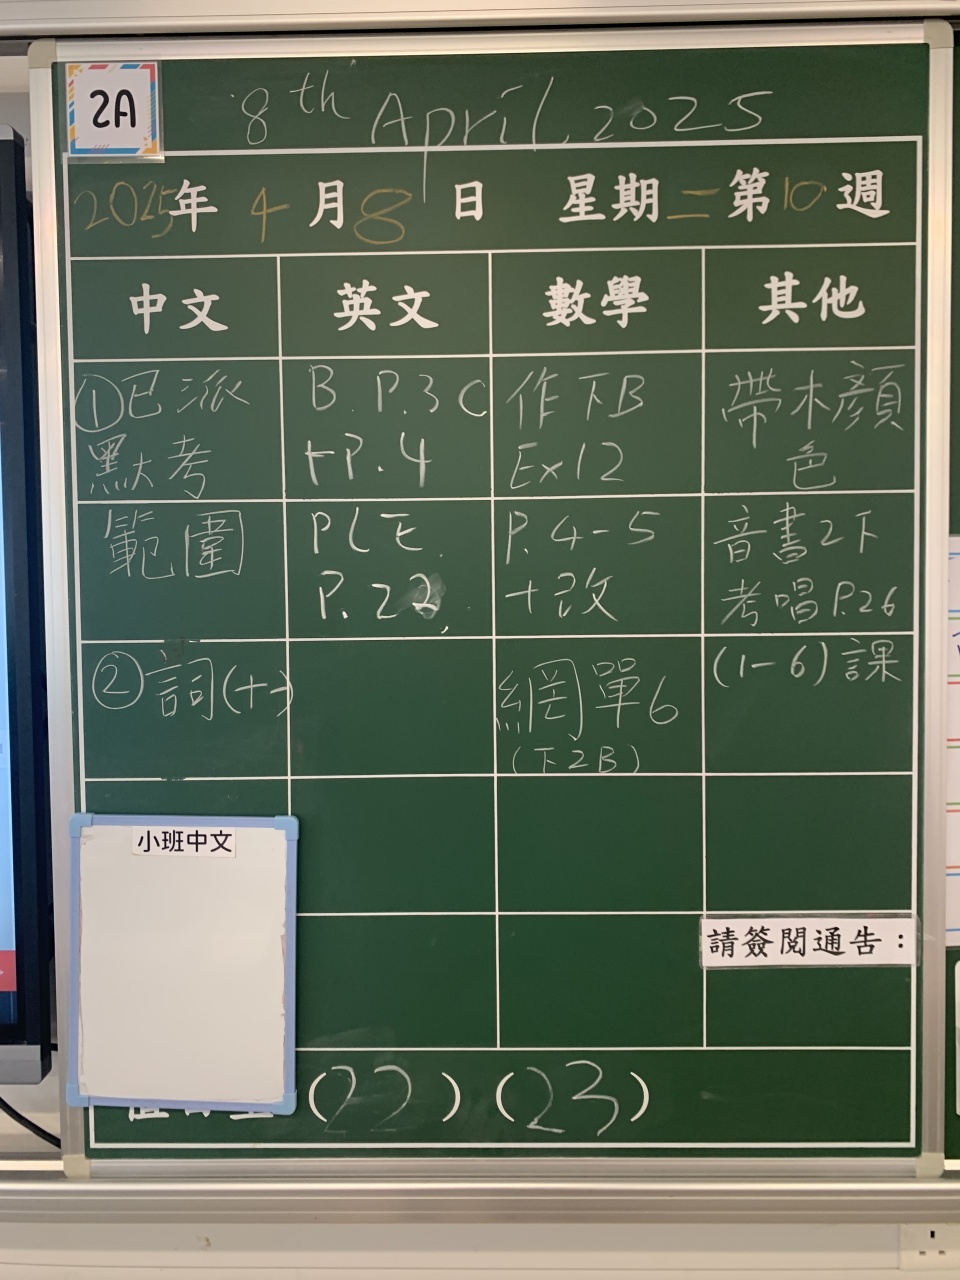 2A
8th April, 2025
2025年 4月8日 星期二第10週
中文 英文 數學 其他
①已派 B P.3C 作下B 帶木顏
默考 +P.4 Ex12 色
範圍 PLE P.4-5 音書2下
P.22, +改 考唱P.26
②詞(十) 網單6 (1-6)課
(下2B)
小班中文
請簽閱通告：
(22) (23)